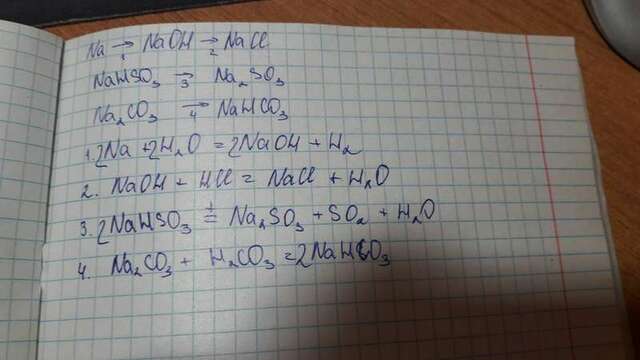 Na →1 NaOH →2 NaCl
NaHSO₃ →3 Na₂SO₃
Na₂CO₃ →4 NaHCO₃
1. 2Na + 2H₂O = 2NaOH + H₂
2. NaOH + HCl = NaCl + H₂O
3. 2NaHSO₃ =t Na₂SO₃ + SO₂ + H₂O
4. Na₂CO₃ + H₂CO₃ = 2NaHCO₃